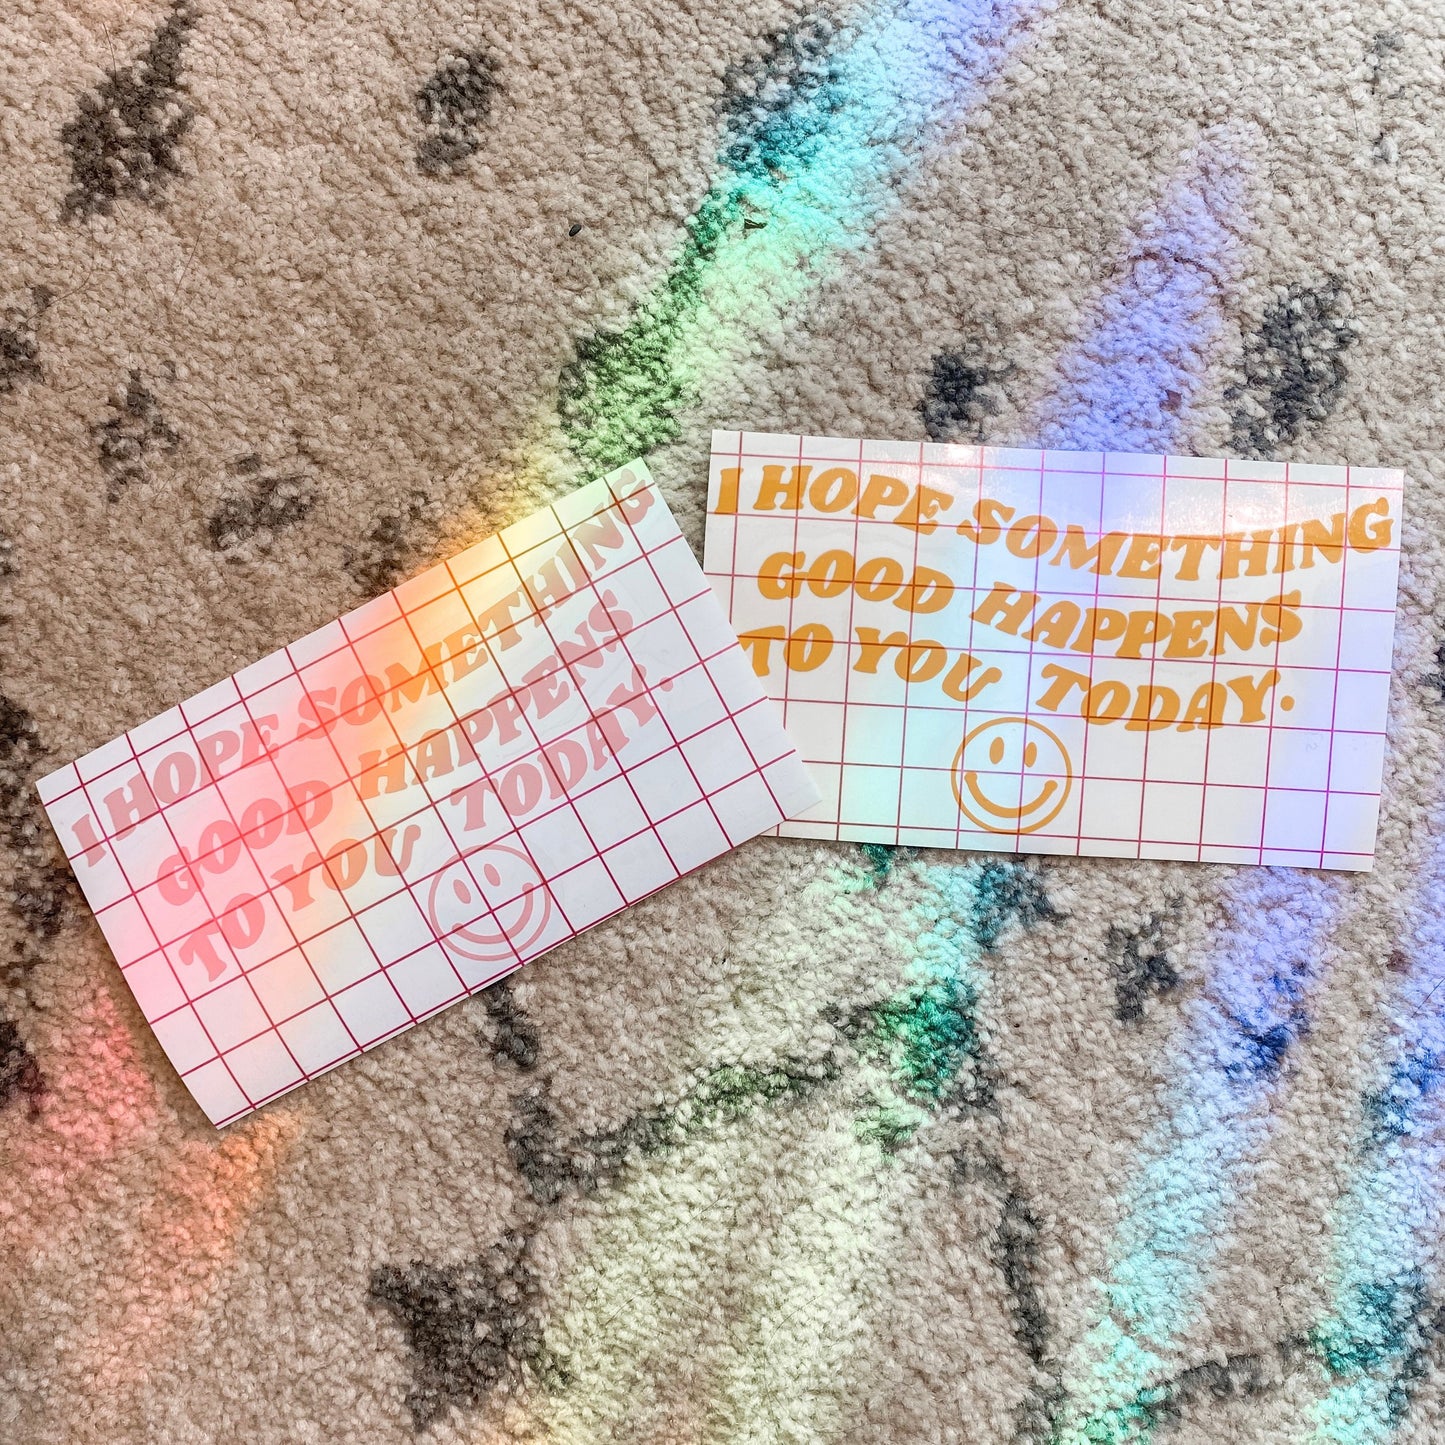 I HOPE SOMETHING
GOOD HAPPENS
TO YOU TODAY.
I HOPE SOMETHING
GOOD HAPPENS
TO YOU TODAY.